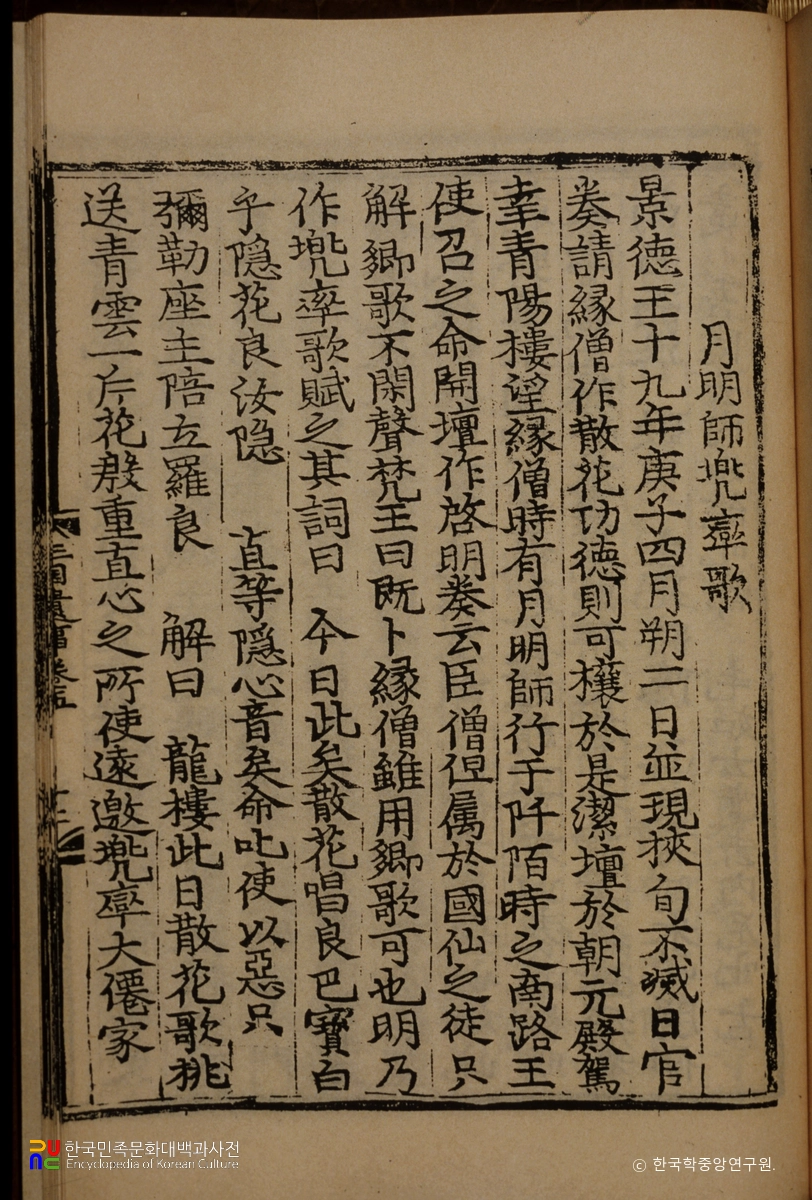 月明師兠率歌
景德王十九年庚子四月朔二日並現挾旬不滅日官
奏請緣僧作散花功德則可禳於是潔壇於朝元殿駕
幸青陽樓望緣僧時有月明師行于阡陌時之南路王
使召之命開壇作啓明奏云臣僧但属於國仙之徒只
解鄕歌不閑聲梵王曰旣卜緣僧雖用鄕歌可也明乃
作兠率歌賦之其詞曰 今日此矣散花唱良巴寶白
乎隱花良汝隱 直等隱心音矣命叱使以惡只
彌勒座主陪立羅良 解曰 龍樓此日散花歌挑
送青雲一片花殷重直心之所使遠邀兠率大僊家
三國遺事卷五
한국민족문화대백과사전
Encyclopedia of Korean Culture
ⓒ 한국학중앙연구원.